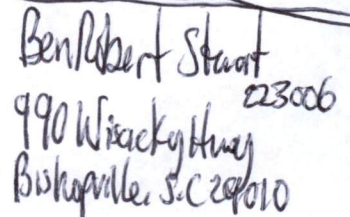 Ben Robert Stewart
223006
990 Wisacky Hwy
Bishopville. S.C 29010